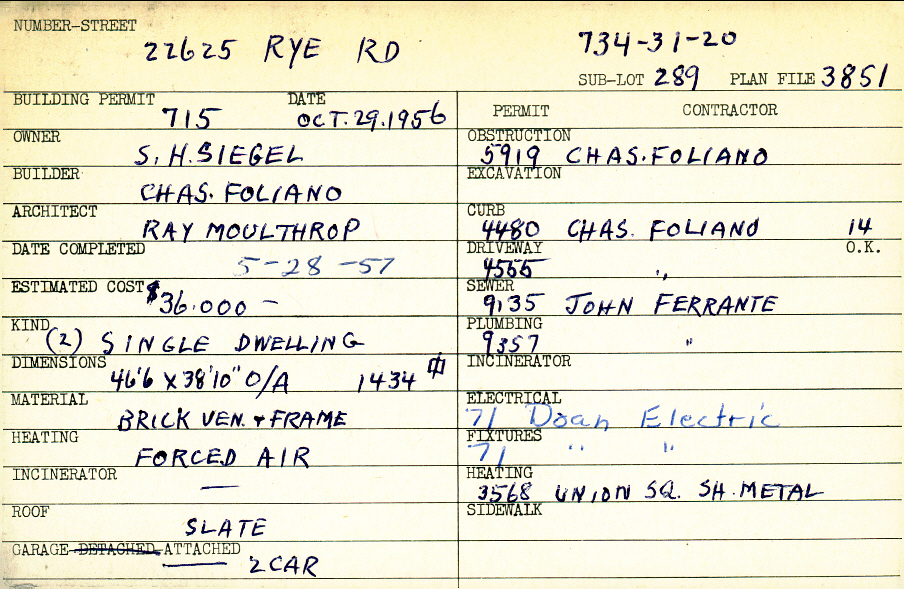 NUMBER-STREET
22625 RYE RD
734-31-20
SUB-LOT 289 PLAN FILE 3851
BUILDING PERMIT DATE
715 OCT.29.1956
OWNER
S. H. SIEGEL
BUILDER
CHAS. FOLIANO
ARCHITECT
RAY MOULTHROP
DATE COMPLETED
5-28-57
ESTIMATED COST
$36.000 —
KIND
(2) SINGLE DWELLING
DIMENSIONS
46'6 X 38'10" O/A 1434
MATERIAL
BRICK VEN. + FRAME
HEATING
FORCED AIR
INCINERATOR
—
ROOF
SLATE
GARAGE-DETACHED-ATTACHED
2 CAR
PERMIT CONTRACTOR
OBSTRUCTION
5919 CHAS. FOLIANO
EXCAVATION
CURB
4480 CHAS. FOLIANO 14
DRIVEWAY O.K.
4555 "
SEWER
9135 JOHN FERRANTE
PLUMBING
9357 "
INCINERATOR
ELECTRICAL
71 Doan Electric
FIXTURES
71 " "
HEATING
3568 UNION SQ. SH. METAL
SIDEWALK